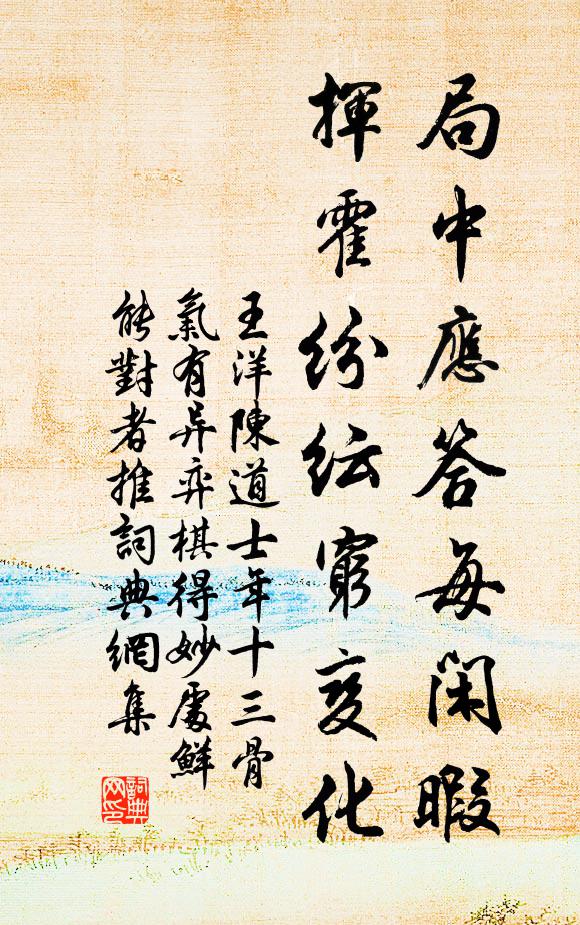 局中應答每閑暇
揮霍紛紜窮變化
王洋陳道士年十三骨
氣有异弈棋得妙處鮮
能對者推詞典網集
詞典
网印